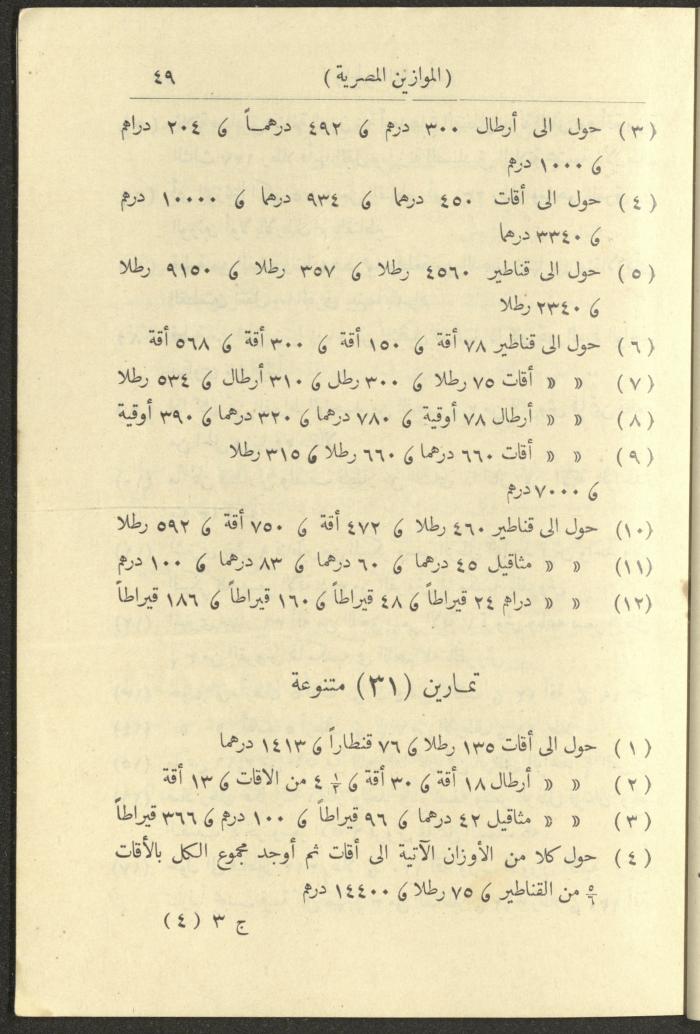 (الموازين المصرية) ٤٩
(٣) حول الى أرطال ٣٠٠ درهم ۹ ٤٩٢ درهمـاً ۹ ٢٠٤ دراهم
۹ ١٠٠٠ درهم
(٤) حول الى أقات ٤٥٠ درهما ۹ ٩٣٤ درهما ۹ ١٠٠٠٠ درهم
۹ ٣٣٤٠ درهما
(٥) حول الى قناطير ٤٥٦٠ رطلا ۹ ٣٥٧ رطلا ۹ ٩١٥٠ رطلا
۹ ٢٣٤٠ رطلا
(٦) حول الى قناطير ٧٨ أقة ۹ ١٥٠ أقة ۹ ٣٠٠ أقة ۹ ٥٦٨ أقة
(٧) » » أقات ٧٥ رطلا ۹ ٣٠٠ رطل ۹ ٣١٠ أرطال ۹ ٥٣٤ رطلا
(٨) » » أرطال ٧٨ أوقية ۹ ٧٨٠ درهما ۹ ٣٢٠ درهما ۹ ٣٩٠ أوقية
(٩) » » أقات ٦٦٠ درهما ۹ ٦٦٠ رطلا ۹ ٣١٥ رطلا
۹ ٧٠٠٠ درهم
(١٠) حول الى قناطير ٤٦٠ رطلا ۹ ٤٧٢ أقة ۹ ٧٥٠ أقة ۹ ٥٩٢ رطلا
(١١) » » مثاقيل ٤٥ درهما ۹ ٦٠ درهما ۹ ٨٣ درهما ۹ ١٠٠ درهم
(١٢) » » دراهم ٢٤ قيراطاً ۹ ٤٨ قيراطاً ۹ ١٦٠ قيراطاً ۹ ١٨٦ قيراطاً
تمـارين (٣١) متنوعة
(١) حول الى أقات ١٣٥ رطلا ۹ ٧٦ قنطاراً ۹ ١٤١٣ درهما
(٢) » » أرطال ١٨ أقة ۹ ٣٠ أقة ۹ ٤ ١/٢ من الاقات ۹ ١٣ أقة
(٣) » » مثاقيل ٤٢ درهما ۹ ٩٦ قيراطاً ۹ ١٠٠ درهم ۹ ٣٦٦ قيراطاً
(٤) حول كلا من الأوزان الآتية الى أقات ثم أوجد مجموع الكل بالأقات
٥/٦ من القناطير ۹ ٧٥ رطلا ۹ ١٤٤٠٠ درهم
ج ٣ (٤)